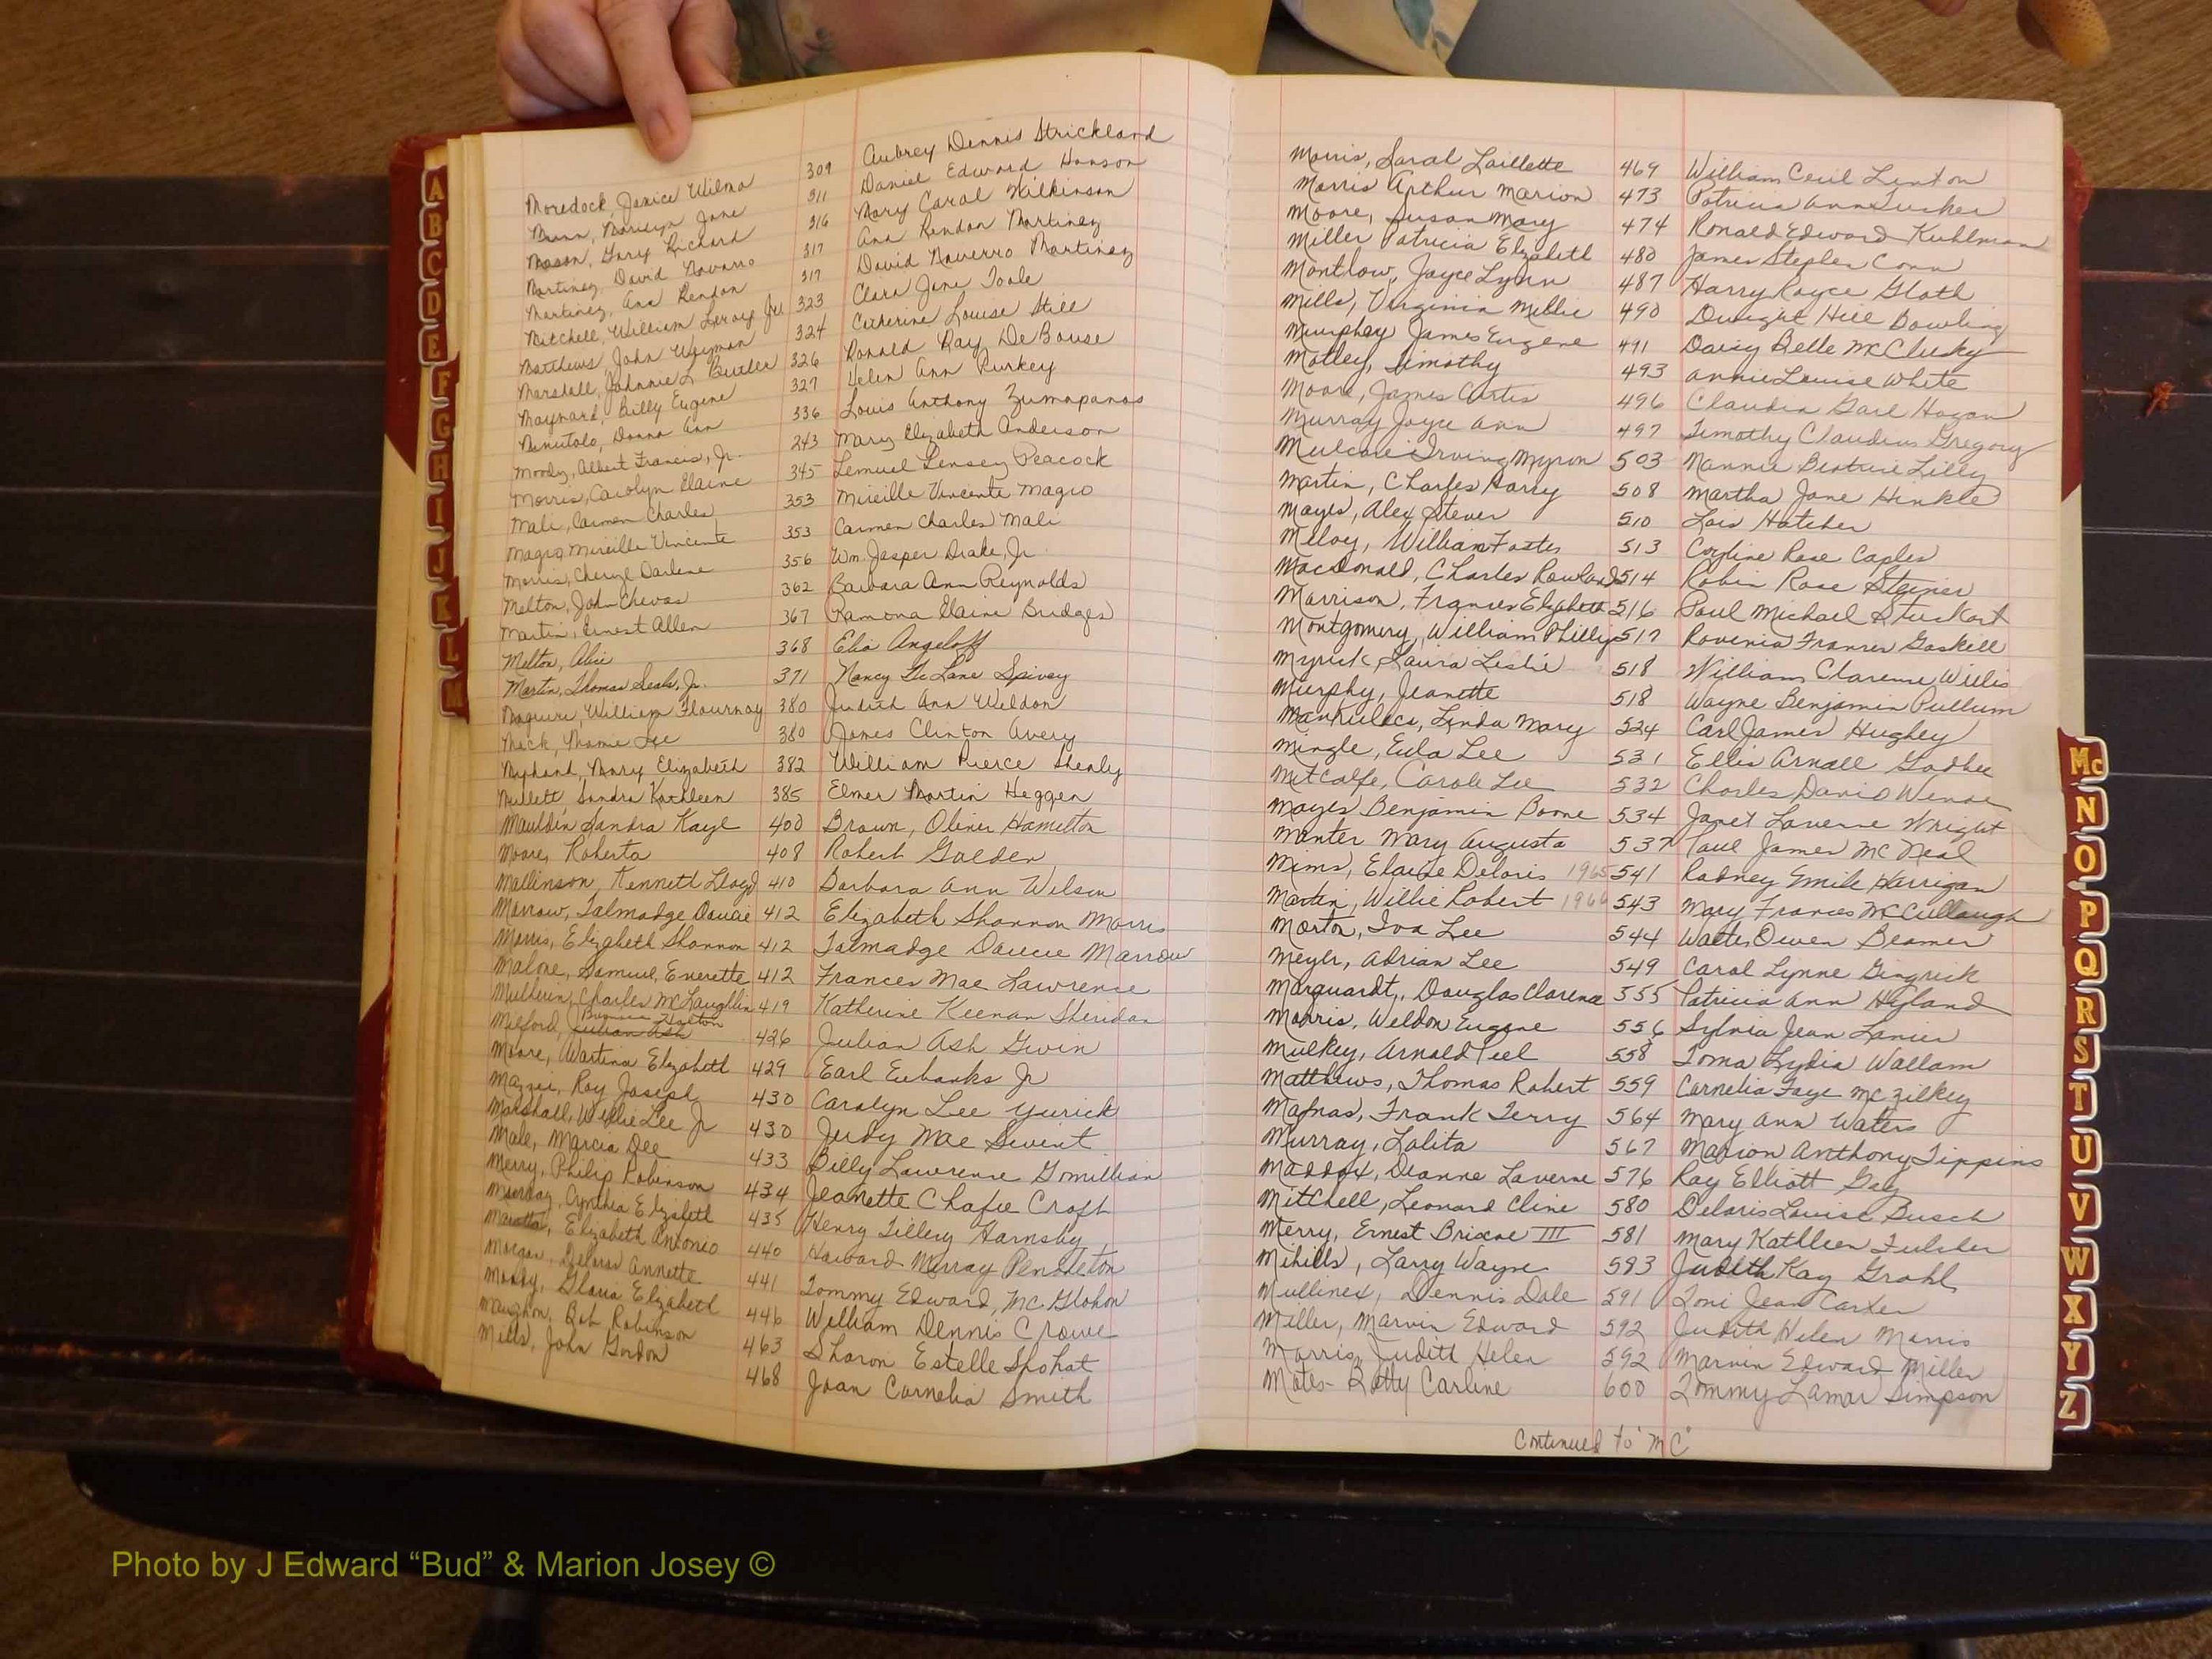 Moredock, Janice Wilma 309 Aubrey Dennis Strickland
Munn, Marilyn Jane 311 Daniel Edward Hanson
Mason, Gary Richard 316 Mary Carol Wilkinson
Martinez, David Navarro 317 Ana Rendon Martinez
Martinez, Ana Rendon 317 David Naverro Martinez
Mitchell, William Leroy Jr 323 Clara Jane Toole
Matthews, John Wayman 324 Catherine Louise Still
Marshall, Johnnie L Butler 326 Ronald Ray De Bouse
Maynard, Billy Eugene 327 Helen Ann Purkey
Donna Ann 336 Louis Anthony
Moody, Albert Francis, Jr. 243 Mary Elizabeth Anderson
Morris, Carolyn Elaine 345 Lemuel Lensey Peacock
Mali, Carmen Charles 353 Mireille Vincente Magro
Magro, Mireille Vincente 353 Carmen Charles Mali
Morris, Cheryl Darlene 356 Wm. Jasper Drake, Jr.
Melton, John Chevas 362 Barbara Ann Reynolds
Martin, Ernest Allen 367 Ramona Elaine Bridges
Melton, Alice 368 Elia Angeloff
Martin, Thomas Seals, Jr. 371 Nancy Spivey
Maguire, William Flournoy 380 Judith Ann Weldon
Mack, Mamie Lee 380 James Clinton Avery
Mary Elizabeth 382 William Pierce Shealy
Sandra Kathleen 385 Elmer Martin Heggen
Mauldin, Sandra Kaye 400 Brown, Oliver Hamilton
Moore, Roberta 408 Robert Golden
Mallinson, Kenneth Lloyd 410 Barbara Ann Wilson
Morrow, Talmadge Doucie 412 Elizabeth Shannon Morris
Morris, Elizabeth Shannon 412 Talmadge Daucie Marrow
Malone, Samuel Everette 412 Frances Mae Lawrence
Mulherin, Charles McLaughlin 419 Katherine Keenan Sheridan
Milford, Julian Ash 426 Julian Ash Gwin
Moore, Wartina Elizabeth 429 Earl Eubanks Jr
Mazzei, Roy Joseph 430 Carolyn Lee Yurick
Marshall, Willie Lee Jr 430 Judy Mae Swint
Male, Marcia Dee 433 Billy Lawrence Gomillian
Merry, Philip Robinson 434 Jeanette Chafee Croft
Cynthia Elizabeth 435 Henry Tillery Hamsby
Elizabeth Antonio 440 Howard Murray Pendleton
Morgan, Delores Annette 441 Tommy Edward McGlohon
Moody, Gloria Elizabeth 446 William Dennis Crowe
Maughon, Bob Robinson 463 Sharon Estelle Shohat
Mills, John Gordon 468 Joan Cornelia Smith
Morris, Sarah Laillette 469 William Cecil Linton
Morris Arthur Marion 473 Patricia Ann Tucker
Moore, Susan Mary 474 Ronald Edward Kuhlman
Miller Patricia Elizabeth 480 James Stephen Conn
Montlow, Joyce Lynn 487 Harry Royce Gloth
Mills, Virginia Millie 490 Dwight Hill Bowling
Murphey James Eugene 491 Daisy Belle McClusky
Motley, Timothy 493 Annie Louise White
Moore, James Curtis 496 Claudia Gail Hogan
Murray Joyce Ann 497 Timothy Claudius Gregory
Irving Myron 503 Nannie Beatrice Lilly
Martin, Charles Harry 508 Martha Jane Hinkle
Mayes, Alex Stever 510 Lois Hatcher
Meloy, William Foster 513 Rose Capler
MacDonald, Charles Rowland 514 Robin Rose Steiner
Morrison, Frances Elizabeth 516 Paul Michael Stuckart
Montgomery, William Phillip 517 Rovenia Frances Gaskill
Myrick, Laura Leslie 518 William Clarence Willis
Murphy, Jeanette 518 Wayne Benjamin Pullum
Linda Mary 524 Carl James Hughey
Mingle, Eula Lee 531 Ellis Arnall Godbee
Metcalfe, Carole Lee 532 Charles David
Mayes Benjamin Boone 534 Janet Laverne Wright
Minter Mary Augusta 537 Paul James McNeal
Mims, Elaine Deloris 1965 541 Rodney Emile Harrigan
Martin, Willie Robert 1966 543 Mary Frances McCullough
Morton, Iva Lee 544 Walter Owen Beamer
Meyer, Adrian Lee 549 Carol Lynne Gingrick
Marquardt, Douglas Clarence 555 Patricia Ann Hyland
Morris, Weldon Eugene 556 Sylvia Jean Lanier
Mulkey, Arnold Peel 558 Toma Lydia Wallam
Matthews, Thomas Robert 559 Cornelia Faye McZilkey
Mafnas, Frank Terry 564 Mary Ann Waters
Murray, Lolita 567 Marion Anthony Tippins
Maddox, Deanne Laverne 576 Ray Elliott Gay
Mitchell, Leonard Cline 580 Deloris Louise Busch
Merry, Ernest Briscoe III 581 Mary Kathleen Fulcher
Mihills, Larry Wayne 583 Judith Kay Grahl
Mullinex, Dennis Dale 591 Toni Jean Carter
Miller, Marvin Edward 592 Judith Helen Morris
Morris, Judith Helen 592 Marvin Edward Miller
Motes- Betty Carline 600 Tommy Lamar Simpson
Continued to "MC"
A
B
C
D
E
F
G
H
I
J
K
L
M
Mc
N
O
P
Q
R
S
T
U
V
W
X
Y
Z
Photo by J Edward “Bud” & Marion Josey ©